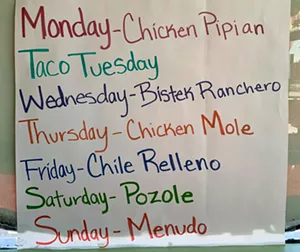 Monday-Chicken Pipian
Taco Tuesday
Wednesday-Bistek Ranchero
Thursday-Chicken Mole
Friday-Chile Relleno
Saturday-Pozole
Sunday-Menudo